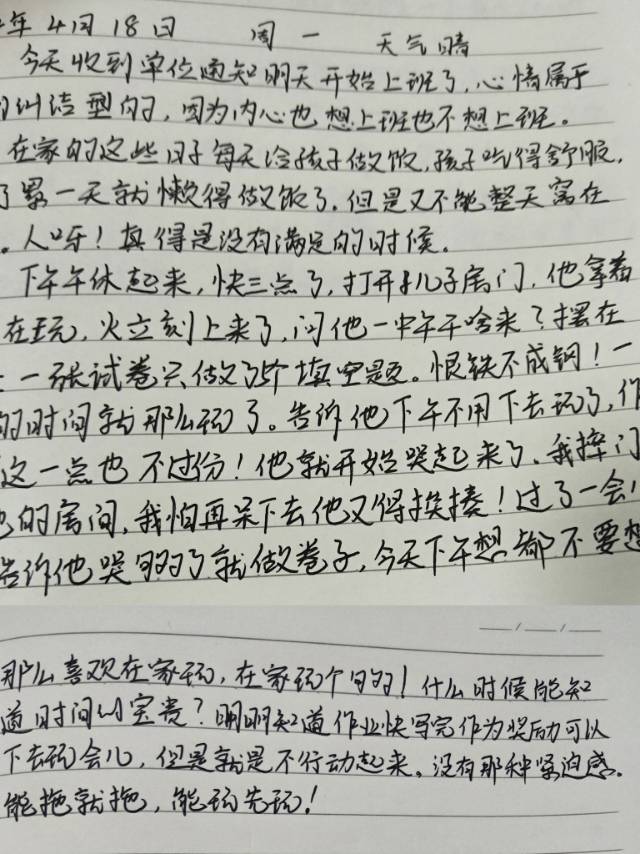 年4月18日 周一 天气晴
今天收到单位通知明天开始上班了,心情属于
纠结型的,因为内心也想上班也不想上班。
在家的这些日子每天给孩子做饭,孩子吃得舒服,
了累一天就懒得做饭了.但是又不能整天窝在
。人呀!真得是没有满足的时候.
下午午休起来,快三点了,打开儿子房门,他拿着
在玩,火立刻上来了,问他一中午干啥来?摆在
一张试卷只做了5个填空题。恨铁不成钢!一
的时间就那么玩了。告诉他下午不用下去玩了,作
这一点也不过份!他就开始哭起来了、我摔门
的房间,我怕再呆下去他又得挨揍!过了一会儿
告诉他哭够了就做卷子,今天下午想都不要想
那么喜欢在家玩,在家玩个够!什么时候能知
道时间的宝贵?明明知道作业快写完作为奖励可以
下去玩会儿,但是就是不行动起来。没有那种紧迫感.
能拖就拖,能玩先玩!